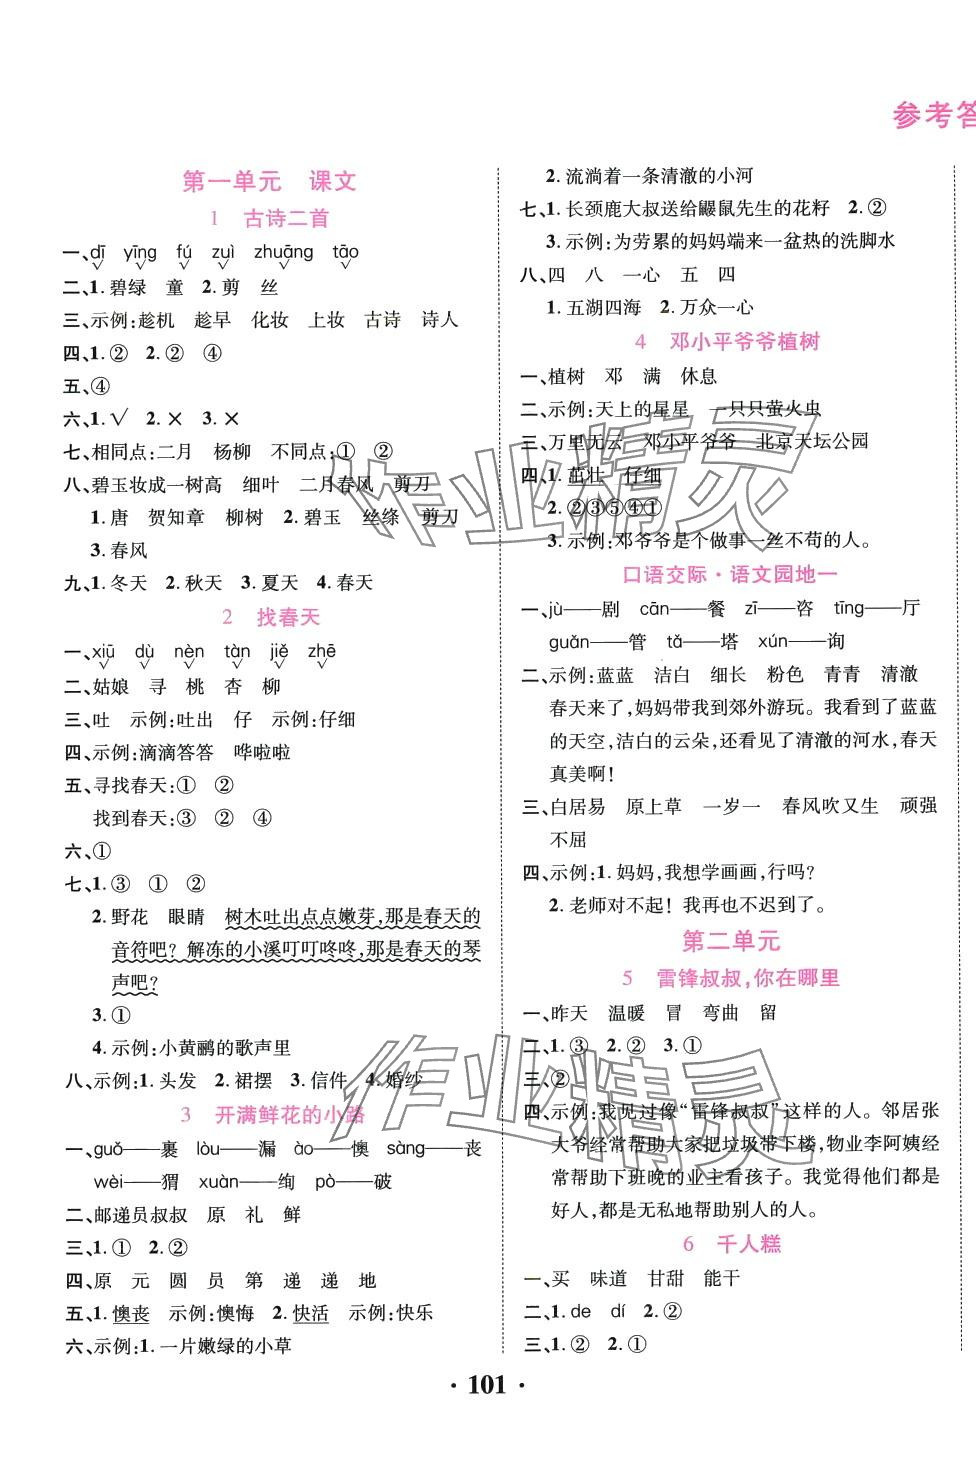 参考答
第一单元　课文
1　古诗二首
一、dī　yīng　fú　zuì　zhuāng　tāo
二、1. 碧绿　童　2. 剪　丝
三、示例:趁机　趁早　化妆　上妆　古诗　诗人
四、1. ②　2. ②　④
五、④
六、1. √　2. ×　3. ×
七、相同点:二月　杨柳　不同点:①　②
八、碧玉妆成一树高　细叶　二月春风　剪刀
1. 唐　贺知章　柳树　2. 碧玉　丝绦　剪刀
3. 春风
九、1. 冬天　2. 秋天　3. 夏天　4. 春天
2　找春天
一、xiū　dù　nèn　tàn　jiě　zhē
二、姑娘　寻　桃　杏　柳
三、吐　示例:吐出　仔　示例:仔细
四、示例:滴滴答答　哗啦啦
五、寻找春天:①　②
找到春天:③　②　④
六、①
七、1. ③　①　②
2. 野花　眼睛　树木吐出点点嫩芽,那是春天的
音符吧?　解冻的小溪叮叮咚咚,那是春天的琴
声吧?
3. ①
4. 示例:小黄鹂的歌声里
八、示例:1. 头发　2. 裙摆　3. 信件　4. 婚纱
3　开满鲜花的小路
一、guǒ——裹　lòu——漏　ào——懊　sàng——丧
wèi——猬　xuàn——绚　pò——破
二、邮递员叔叔　原　礼　鲜
三、1. ①　2. ②
四、原　元　圆　员　第　递　递　地
五、1. 懊丧　示例:懊悔　2. 快活　示例:快乐
六、示例:1. 一片嫩绿的小草
2. 流淌着一条清澈的小河
七、1. 长颈鹿大叔送给鼹鼠先生的花籽　2. ②
3. 示例:为劳累的妈妈端来一盆热的洗脚水
八、四　八　一心　五　四
1. 五湖四海　2. 万众一心
4　邓小平爷爷植树
一、植树　邓　满　休息
二、示例:天上的星星　一只只萤火虫
三、万里无云　邓小平爷爷　北京天坛公园
四、1. 茁壮　仔细
2. ②③⑤④①
3. 示例:邓爷爷是个做事一丝不苟的人。
口语交际·语文园地一
一、jù——剧　cān——餐　zī——咨　tīng——厅
guǎn——管　tǎ——塔　xún——询
二、示例:蓝蓝　洁白　细长　粉色　青青　清澈
春天来了,妈妈带我到郊外游玩。我看到了蓝蓝
的天空,洁白的云朵,还看见了清澈的河水,春天
真美啊!
三、白居易　原上草　一岁一　春风吹又生　顽强
不屈
四、示例:1. 妈妈,我想学画画,行吗?
2. 老师对不起!　我再也不迟到了。
第二单元
5　雷锋叔叔,你在哪里
一、昨天　温暖　冒　弯曲　留
二、1. ③　2. ②　3. ①
三、②
四、示例:我见过像“雷锋叔叔”这样的人。邻居张
大爷经常帮助大家把垃圾带下楼,物业李阿姨经
常帮助下班晚的业主看孩子。我觉得他们都是
好人,都是无私地帮助别人的人。
6　千人糕
一、买　味道　甘甜　能干
二、1. de　dí　2. ②
三、1. ②　2. ①
· 101 ·
作业精灵
作业精灵